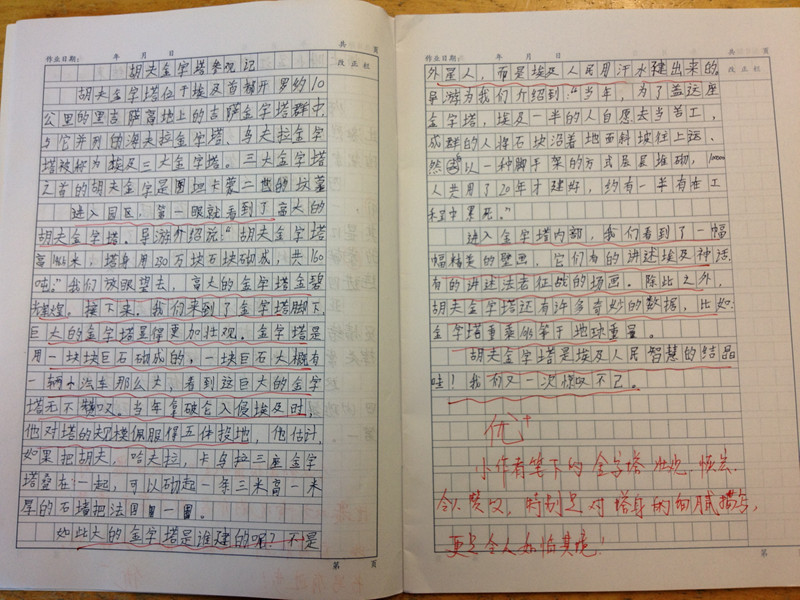 作业日期： 年 月 日 共 页
改正栏
胡夫金字塔参观记
胡夫金字塔位于埃及首都开罗约10
公里的里吉萨高地上的吉萨金字塔群中,
与它并列的海夫拉金字塔、乌夫拉金字
塔被称为埃及三大金字塔。三大金字塔
之首的胡夫金字是图坦卡蒙二世的坟墓
进入园区，第一眼就看到了高大的
胡夫金字塔。导游介绍说：“胡夫金字塔
高146米，塔身用230万块石块砌成，共160
吨。”我们放眼望去，高大的金字塔金碧
辉煌。接下来，我们来到了金字塔脚下,
巨大的金字塔显得更加壮观。金字塔是
用一块块巨石砌成的，一块巨石大概有
一辆小汽车那么大，看到这巨大的金字
塔无不惊叹。当年拿破仑入侵埃及时,
他对塔的规模佩服得五体投地，他估计,
如果把胡夫，哈夫拉，卡乌拉三座金字
塔垒在一起，可以砌起一条三米高一米
厚的石墙把法国围一圈。
如此大的金字塔是谁建的呢？不是
第 页
作业日期： 年 月 日 共 页
改正栏
外星人，而是埃及人民用汗水建出来的
导游为我们介绍到：“当年，为了盖这座
金字塔，埃及一半的人自愿去当苦工，
成群的人将石块沿着地面斜坡往上运、
然后以一种脚手架的方式层层堆砌，
人共用了20年才建好，约有一半有在工
程中累死。”
进入金字塔内部，我们看到了一幅
幅精美的壁画，它们有的讲述埃及神话,
有的讲述法老征战的场画。除此之外，
胡夫金字塔还有许多奇妙的数据，比如:
金字塔重乘 能等于地球重量。
胡夫金字塔是埃及人民智慧的结晶
哇！我们又一次惊叹不已。
优+
小作者笔下的金字塔壮观、恢宏、
令人赞叹，特别是对塔身的细腻描写，
更是令人如临其境！
第 页